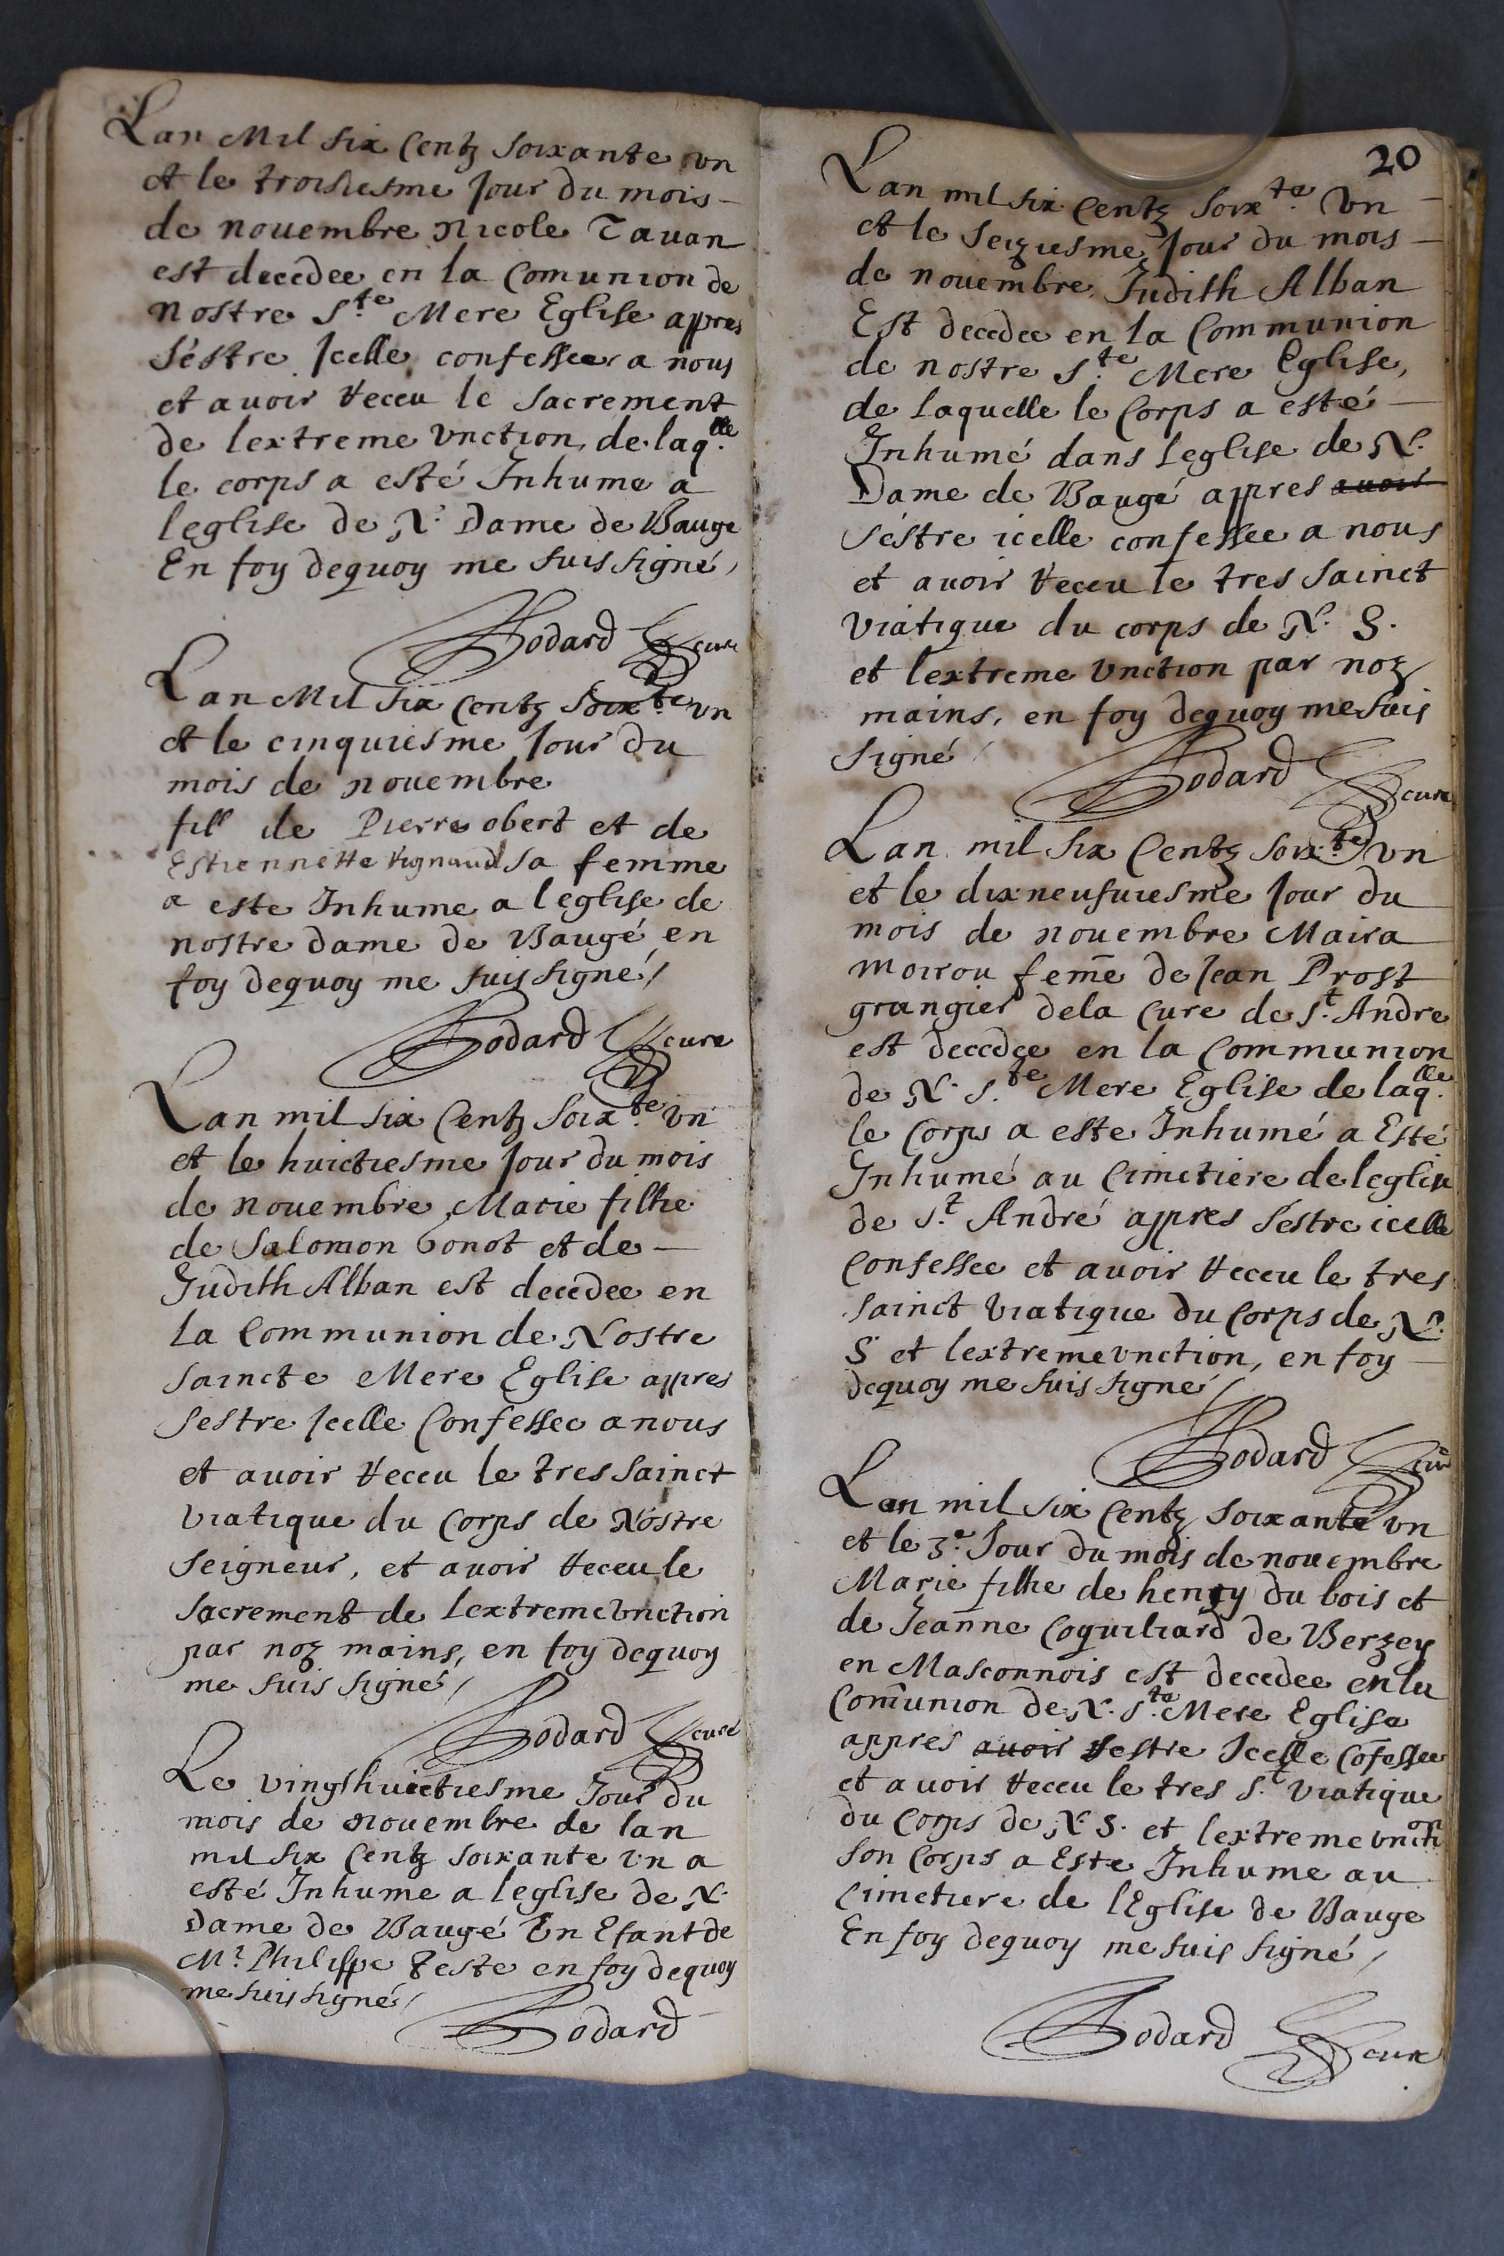 Lan Mil six Centz soixante vn
et le troisiesme Jour du mois -
de nouembre Nicole Tauan
est decedee en la Comunion de
nostre S.te Mere Eglise appres
s'estre Jcelle confessee a nous
et auoir receu le Sacrement
de lextreme vnction, de laq.lle
le corps a esté Inhume a
leglise de N. Dame de Bauge
En foy dequoy me suis signé,
Bodard cure
Lan Mil six Centz Soix.te vn
et le cinquiesme Jour du
mois de nouembre
fill de Pierre obert et de
Estiennette Vignaud sa femme
a este Inhume a leglise de
nostre dame de Baugé en
foy dequoy me suis signé,
Bodard cure
Lan mil six Centz Soix.te vn
et le huictiesme Jour du mois
de nouembre Marie filhe
de Salomon Gonot et de -
Judith Alban est decedee en
la Communion de Nostre
saincte Mere Eglise appres
sestre Jcelle Confessee a nous
et auoir receu le tres sainct
viatique du Corps de Nostre
Seigneur, et auoir receu le
sacrement de Lextreme vnction
par noz mains, en foy dequoy
me suis signé,
Bodard curé
Le vingthuictiesme Jour du
mois de nouembre de lan
mil six Centz soixante vn a
esté Inhume a leglise de N.
Dame de Baugé Vn Efant de
M.r Philippe Teste en foy dequoy
me suis signé,
Bodard
20
Lan mil six Centz Soix.te Vn -
et le seiziesme Jour du mois -
de nouembre, Judith Alban
Est decedee en la Communion
de nostre S.te Mere Eglise,
de Laquelle le Corps a esté -
Inhumé dans leglise de N.
Dame de Baugé appres auoir
s'estre icelle confessee a nous
et avoir receu le tres Sainct
Viatique du corps de N. S.
et lextreme vnction par noz
mains, en foy dequoy me suis
signé,
Bodard cure
Lan mil six Centz soix.te vn
et le dixneufuiesme Jour du
mois de nouembre Maira
Moirou feme de Jean Prost
grangier dela Cure de S.t Andre
est decedee en la Communion
de N. S.te Mere Eglise de laq.lle
le Corps a este Inhumé a Esté
Inhumé au Cimetiere de leglise
de S.t André appres s'estre icelle
Confessee et auoir receu le tres
sainct viatique du Corps de N.
S et lextreme vnction, en foy -
dequoy me suis signé,
Bodard curé
Lan mil six Centz soixante vn
et le 3.e Jour du mois de nouembre
Marie filhe de henry du bois et
de Jeanne Coquiliard de Berzey
en Masconnois est decedee en la
Comunion de N. S.te Mere Eglise
appres auoir sestre Jcelle Cofessee
et auoir receu le tres S.t viatique
du Corps de N. S. et lextreme vnction
son Corps a Este Inhume au
Cimetiere de lEglise de Bauge
En foy dequoy me suis signé,
Bodard cure